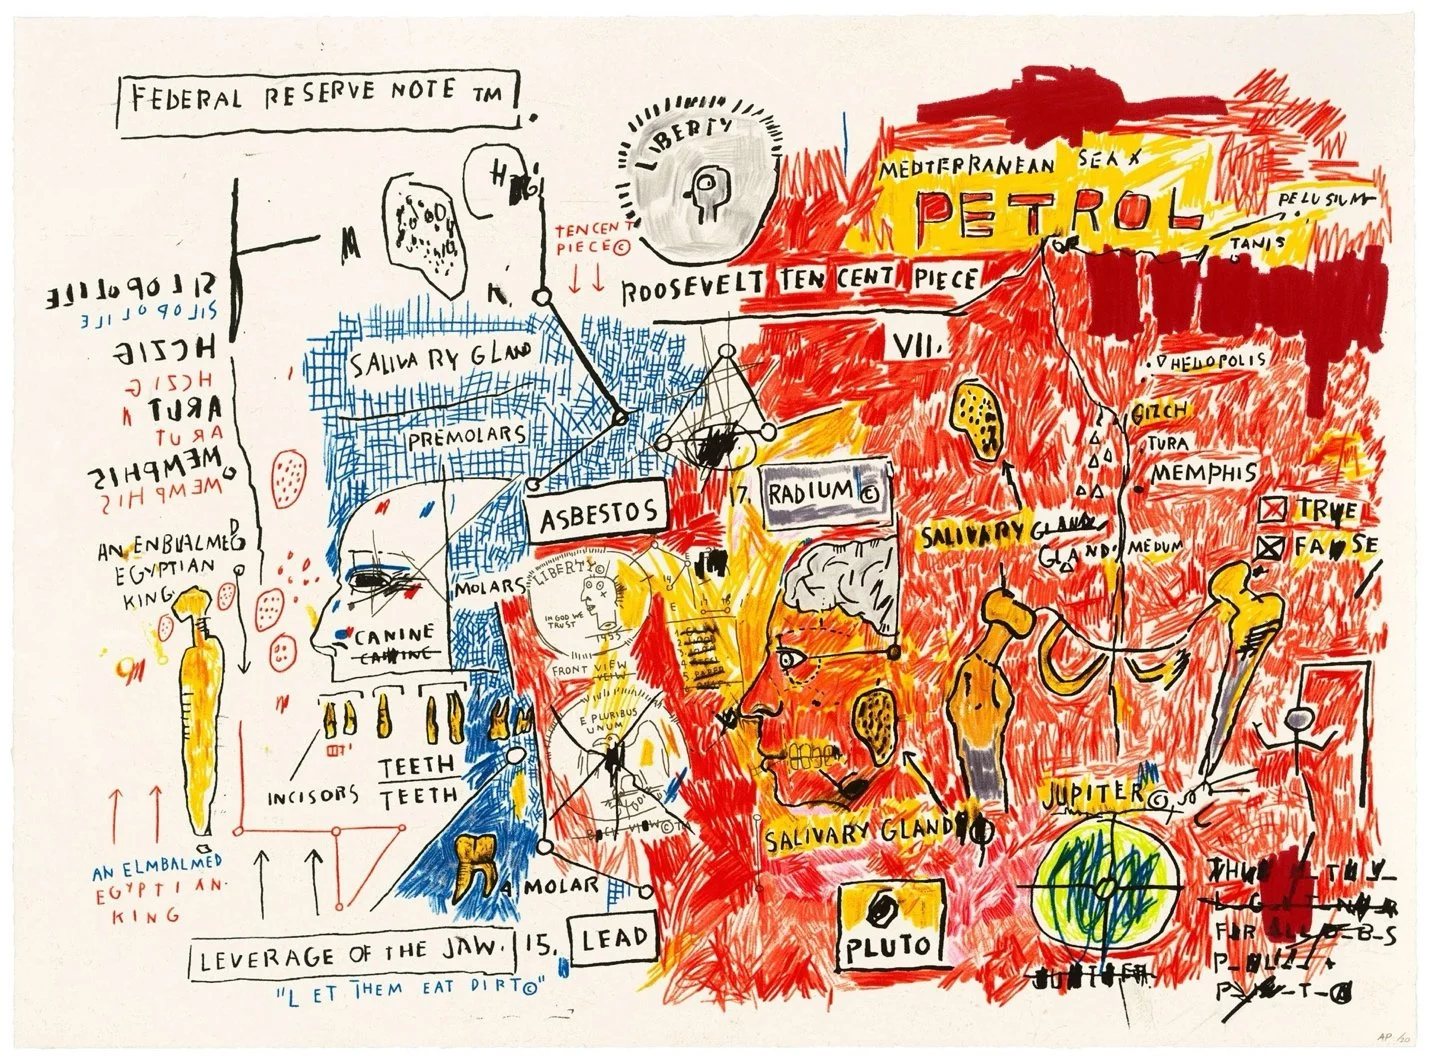 FEDERAL RESERVE NOTE TM
LIBERTY
TEN CENT
PIECE©
ROOSEVELT TEN CENT PIECE
VII.
MEDTERRANEAN SEA X
PETROL
PELUSIUM
TANIS
HELIOPOLIS
GIZCH
TURA
MEMPHIS
MEDUM
MEMPHIS
MEMPHIS
SALIVARY GLAND
PREMOLARS
ASBESTOS
17.
RADIUM ©
SALIVARY GLAND
GLAND.
TRUE
FALSE
AN ENBUALMED
EGYPTIAN
KING
MOLARS
CANINE
CANINE
LIBERTY©
IN GOD WE
TRUST
1955
FRONT VIEW
VEIW
E PLURIBUS
UNUM
BACK VIEW©TM
INCISORS
TEETH
TEETH
AN ELMBALMED
EGYPTIAN.
KING
A MOLAR
LEVERAGE OF THE JAW.
15.
LEAD
"LET THEM EAT DIRT©"
SALIVARY GLAND
PLUTO
JUPITER©
JUPITER.
AP /20